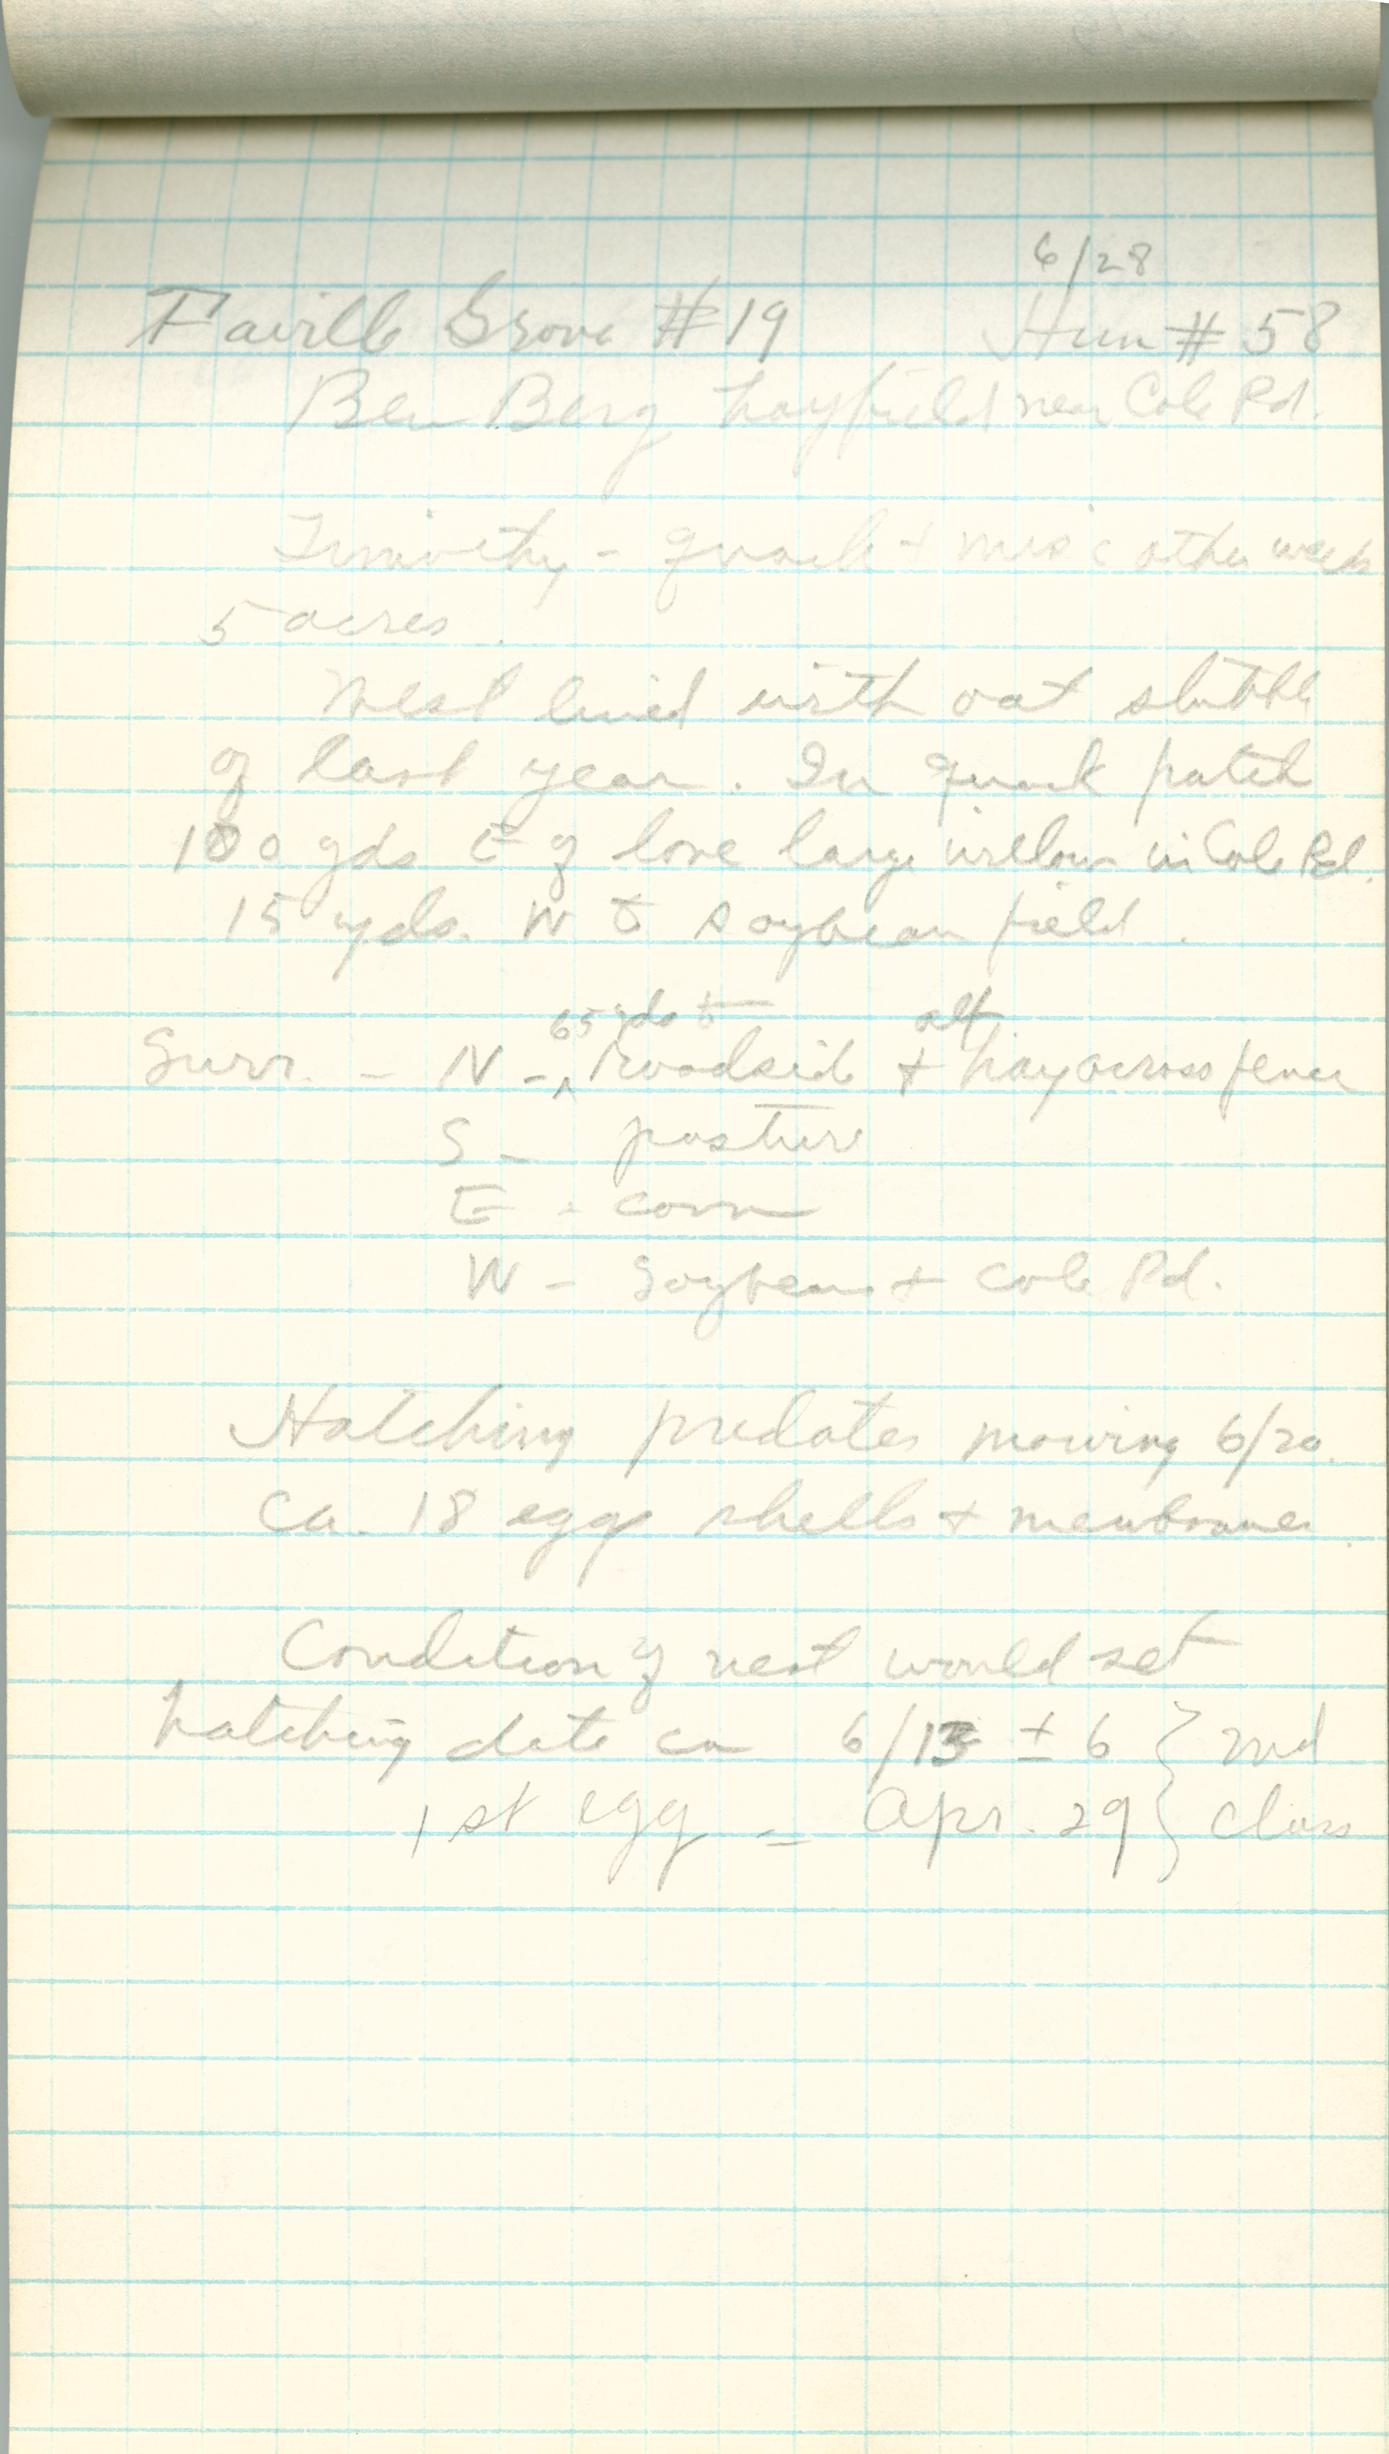 6/28
Faville Grove #19 Hun #58
Ben Berg hayfield near Cole Rd.
Timothy - quack + misc other weeds
5 acres.
Nest lined with oat stubble
of last year. In quack patch
100 yds E of lone large willow in Cole Rd.
15 yds. W to soybean field.
65 yds to alf
Surr. - N - ^ roadside + hay across fence
S - pasture
E - corn
W - Soybeans + Cole Rd.
Hatching predates mowing 6/20.
Ca. 18 egg shells + membranes.
Condition of nest would set
hatching date ca 6/13 ± 6 } 2nd
1st egg = Apr. 29 } class